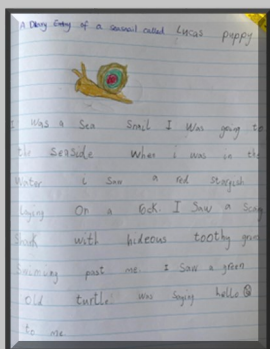 A Diary Entry of a seasnail called Lucas puppy
I was a Sea Snail I was going to
the seaside when i was in the
water i saw a red starfish
laying on a rock. I saw a scary
shark with hideous toothy grin
swimming past me. i saw a green
old turtle was saying hello
to me